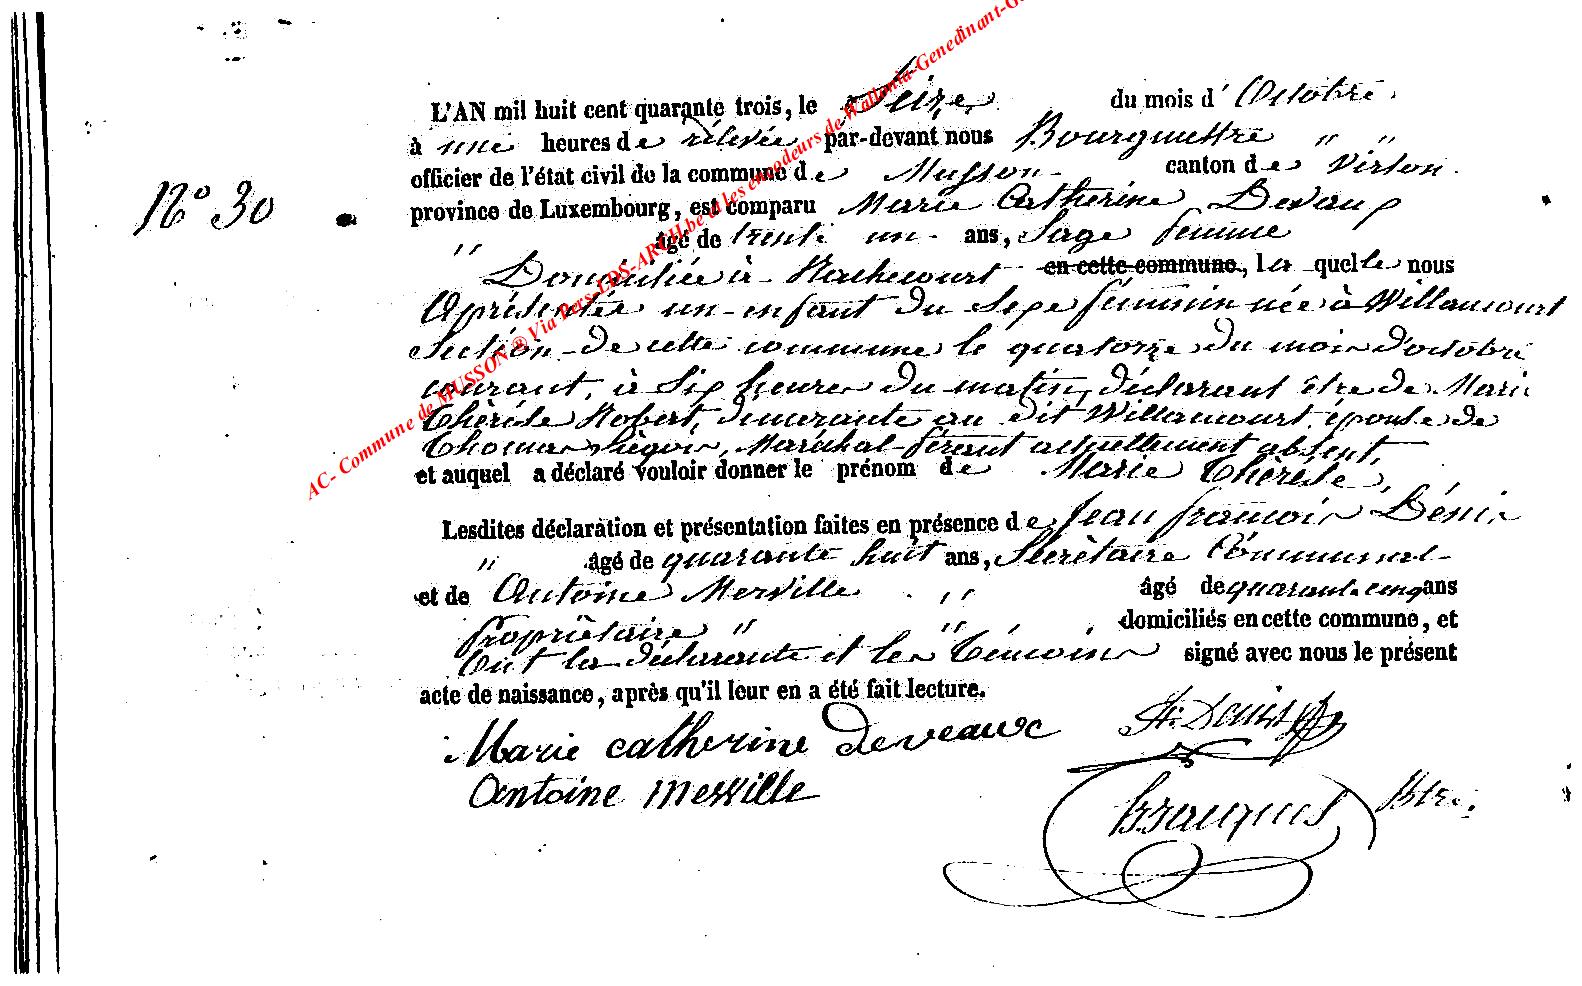 L'AN mil huit cent quarante trois, le Seize du mois d' Octobre
à une heures de rélevée par-devant nous Bourgmestre " "
officier de l'état civil de la commune de Musson canton de Virton
N° 30
province de Luxembourg, est comparu Marie Catherine Devaux
" âgé de trente un ans, Sage femme
Domiciliée à Rachecourt en cette commune, la quelle nous
a présentée un enfant du Sexe féminin née à Willancourt
Section de cette commune le quatorze du mois d'octobre
courant, à Six heures du matin, déclarant être de Marie
Thérèse Robert, demeurante au dit Willancourt, épouse de
Thomas, Maréchal-férant actuellement absent,
et auquel a déclaré vouloir donner le prénom de Marie Thérèse,
Lesdites déclaration et présentation faites en présence de Jean françois Dénis
" âgé de quarante huit ans, Secrètaire Communal
et de Antoine Merville " âgé de quarante cinq ans
propriètaire " " , domiciliés en cette commune, et
Ont la déclarante et les Témoins signé avec nous le présent
acte de naissance, après qu'il leur en a été fait lecture.
Marie catherine deveaux Denis
Antoine merville
AC- Commune de MUSSON @ Via Pers-LDS-ARCH.be et les encodeurs de Wallonia-Genedinant-G